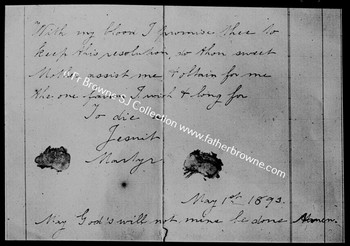 "With my bloon I promise thee to
keep this resolution, so thou sweet
Mother assist me & obtain for me
the one favour I wish & long for
To die a
Jesuit
Martyr
May 1st 1893.
May God's will not mine be done Amen.
© Fr Browne SJ Collection
www.fatherbrowne.com